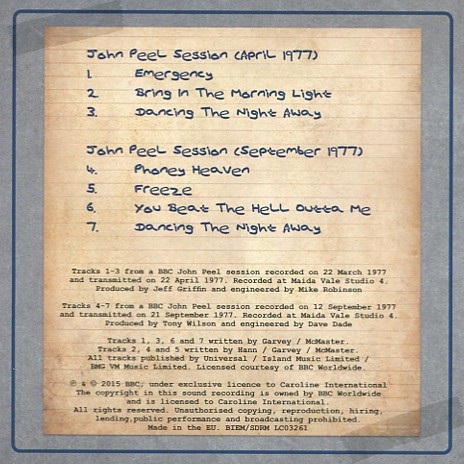 John Peel Session (April 1977)
1. Emergency
2. Bring In The Morning Light
3. Dancing The Night Away
John Peel Session (September 1977)
4. Phoney Heaven
5. Freeze
6. You Beat The Hell Outta Me
7. Dancing The Night Away
Tracks 1-3 from a BBC John Peel session recorded on 22 March 1977
and transmitted on 22 April 1977. Recorded at Maida Vale Studio 4.
Produced by Jeff Griffin and engineered by Mike Robinson
Tracks 4-7 from a BBC John Peel session recorded on 12 September 1977
and transmitted on 21 September 1977. Recorded at Maida Vale Studio 4.
Produced by Tony Wilson and engineered by Dave Dade
Tracks 1, 3, 6 and 7 written by Garvey / McMaster.
Tracks 2, 4 and 5 written by Hann / Garvey / McMaster.
All tracks published by Universal / Island Music Limited /
BMG VM Music Limited. Licensed courtesy of BBC Worldwide.
℗ & © 2015 BBC, under exclusive licence to Caroline International
The copyright in this sound recording is owned by BBC Worldwide
and is licensed to Caroline International.
All rights reserved. Unauthorised copying, reproduction, hiring,
lending,public performance and broadcasting prohibited.
Made in the EU. BIEM/SDRM LC03261